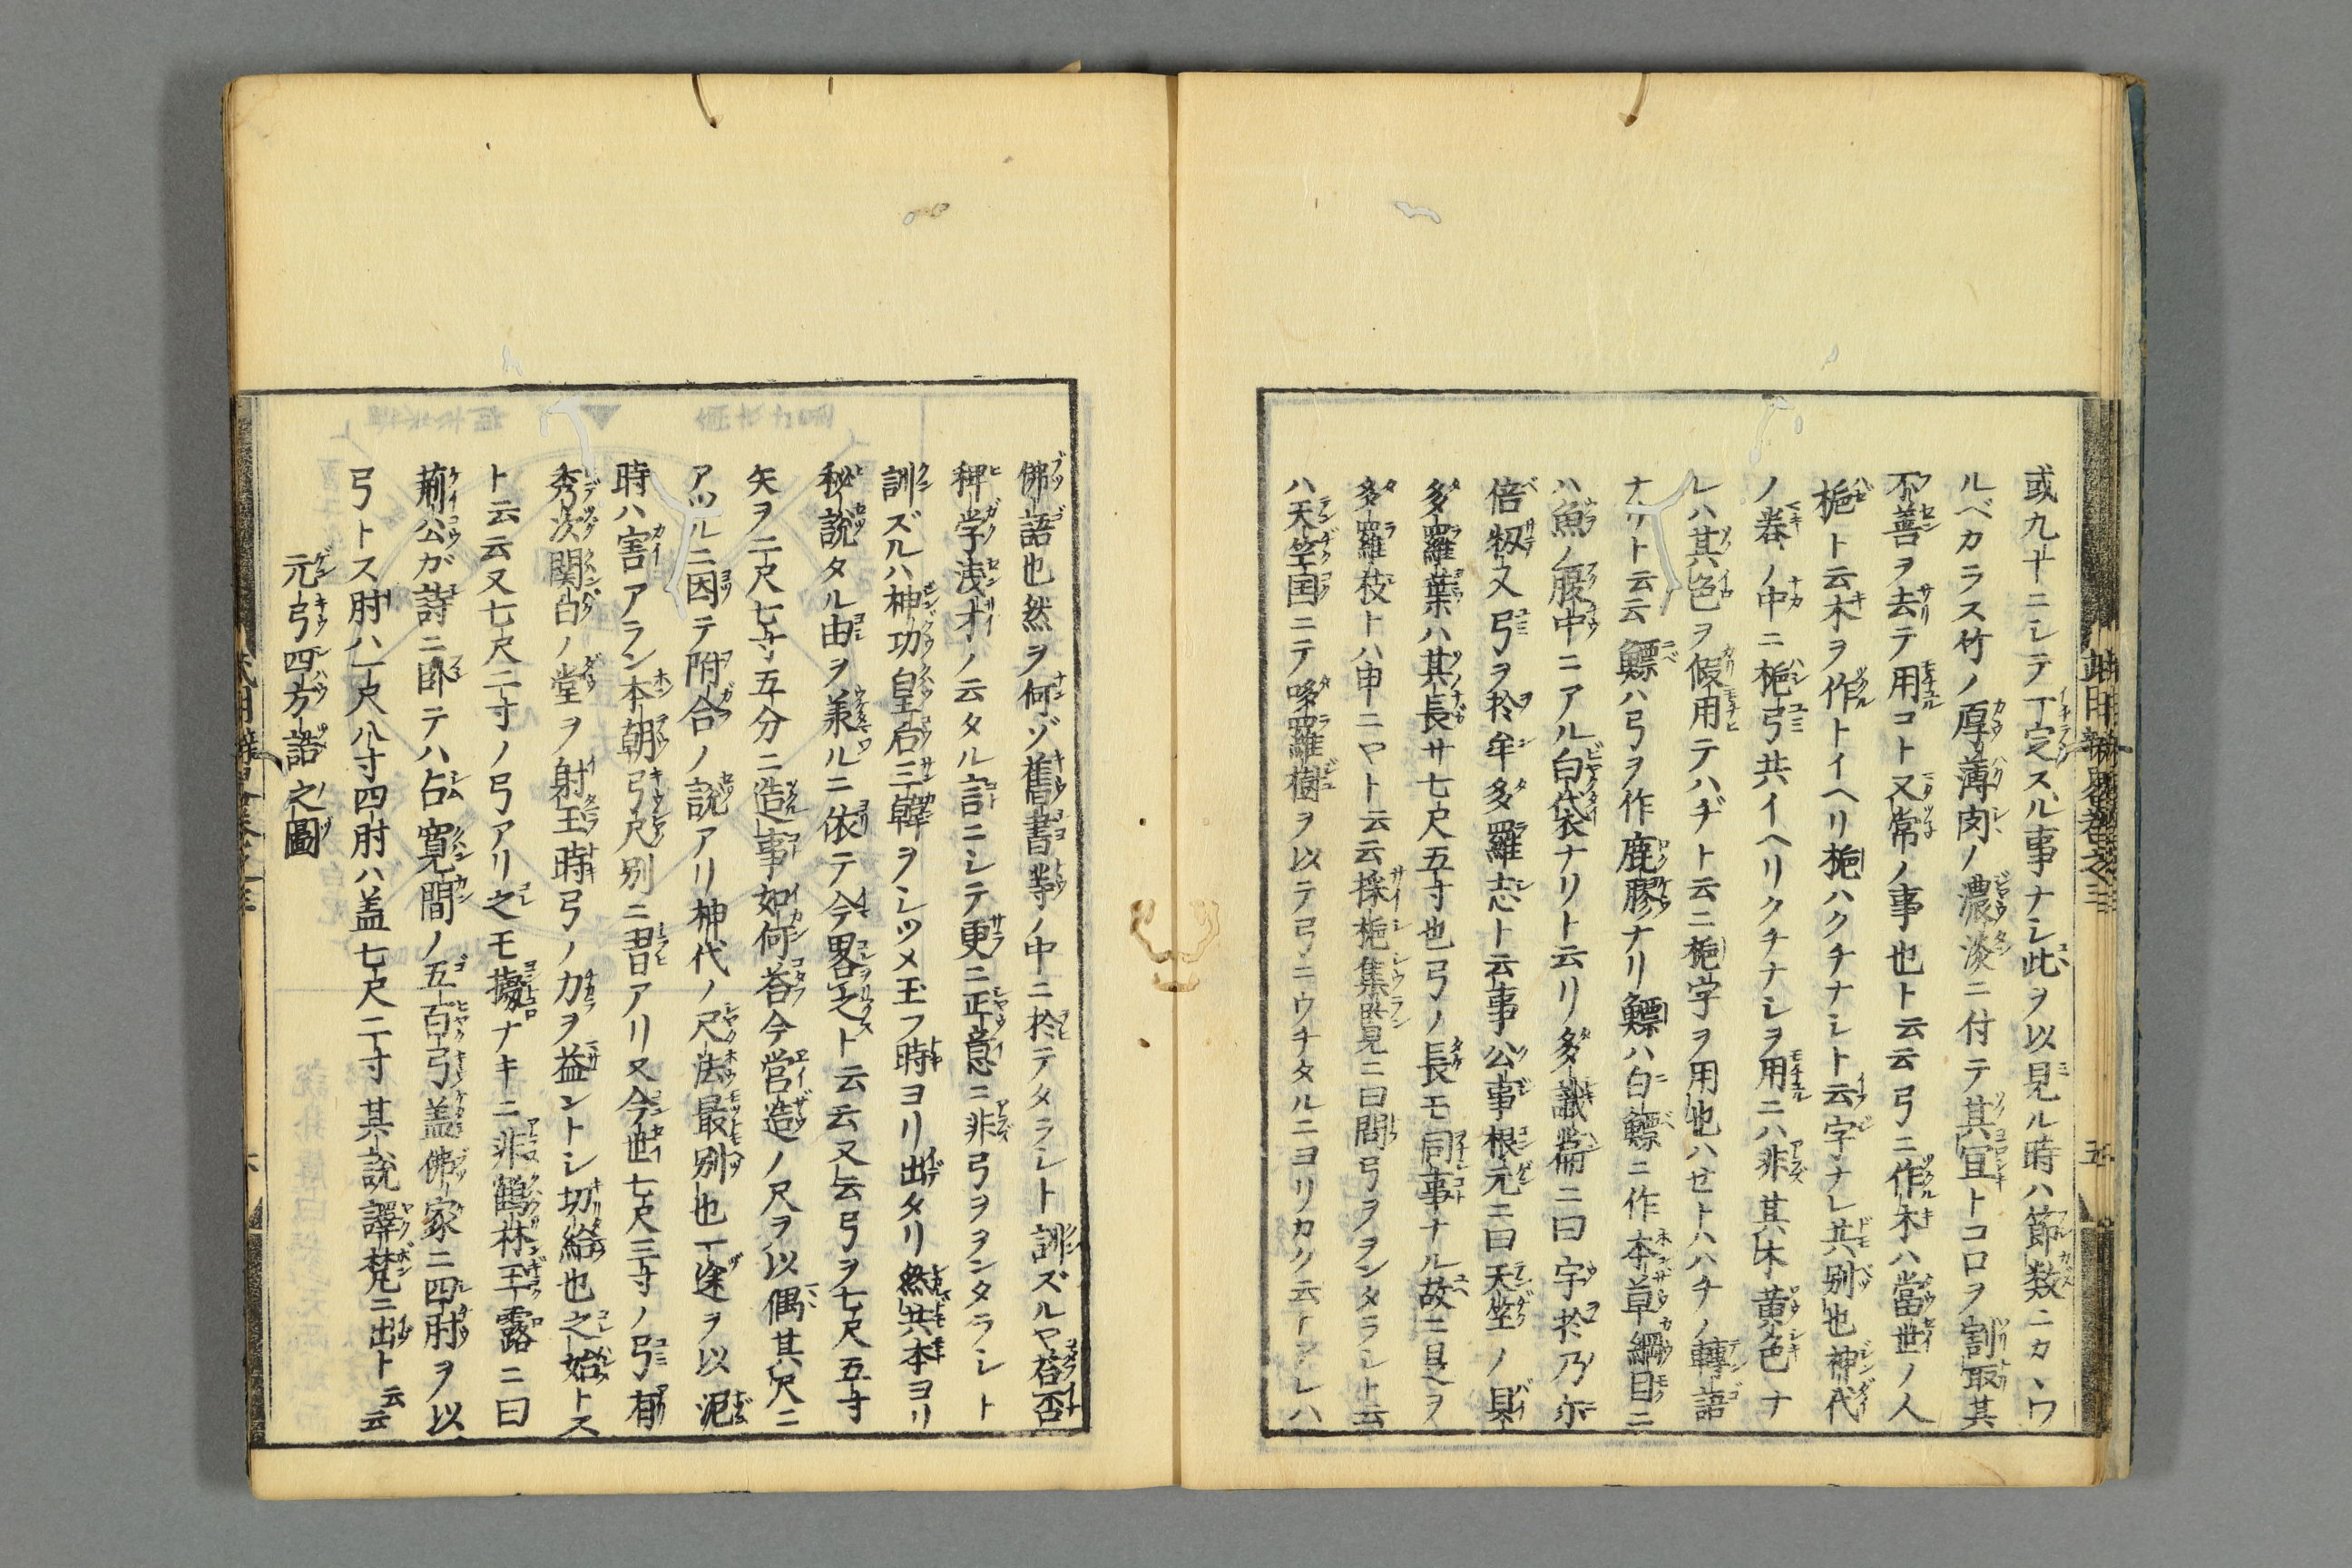 或九十ニシテ一定スル事ナシ此ヲ以見ル時ハ節数ニカヽワ
ルベカラス竹ノ厚薄肉ノ濃淡ニ付テ其宜トコロヲ割取其
不善ヲ去テ用コト又常ノ事也ト云云弓ニ作木ハ當世ノ人
梔ト云木ヲ作トイヘリ梔ハクチナシト云字ナレ共別也神代
ノ巻ノ中ニ梔弓共イヘリクチナシヲ用ニハ非其木黄色ナ
レハ其色ヲ假用テハヂト云ニ梔字ヲ用也ハセトハハチノ轉語
ナリト云云鰾ハ弓ヲ作鹿膠ナリ鰾ハ白鰾ニ作本草綱目ニ
ハ魚ノ腹中ニアル白袋ナリト云リ多識篇ニ曰宇於乃尓
倍扨又弓ヲ於牟多羅志ト云事公事根元ニ曰天竺ノ貝
多羅葉ハ其長サ七尺五寸也弓ノ長モ同事ナル故ニ是ヲ
多羅枝トハ申ニヤト云云採梔集覧ニ曰問弓ヲヲンタラシト云
ハ天竺国ニテ哆羅樹ヲ以テ弓ニウチタルニヨリカク云トアレハ
佛語也然ヲ何ゾ舊書等ノ中ニ於テタラシト訓ズルヤ答否
稗学浅才ノ云タル言ニシテ更ニ正意ニ非弓ヲヲンタラシト
訓ズルハ神功皇后三韓ヲシツメ玉フ時ヨリ出タリ然共本ヨリ
秘説タル由ヲ兼ルニ依テ今畧之ト云云又云弓ヲ七尺五寸
矢ヲ二尺七寸五分ニ造事如何答今営造ノ尺ヲ以偶其尺ニ
アツルニ因テ附合ノ説アリ神代ノ尺法最別也一途ヲ以泥
時ハ害アラン本朝弓尺別ニ習アリ又今世七尺三寸ノ弓有
秀次関白ノ堂ヲ射玉時弓ノ力ヲ益ントシ切給也之始トス
ト云云又七尺二寸ノ弓アリ之モ據ナキニ非鶴林玉露ニ曰
荊公ガ詩ニ臥テハ占寛間ノ五百弓盖佛家ニ四肘ヲ以
弓トス肘ハ一尺八寸四肘ハ盖七尺二寸其説譯梵ニ出ト云云
元弓四方詰之圖